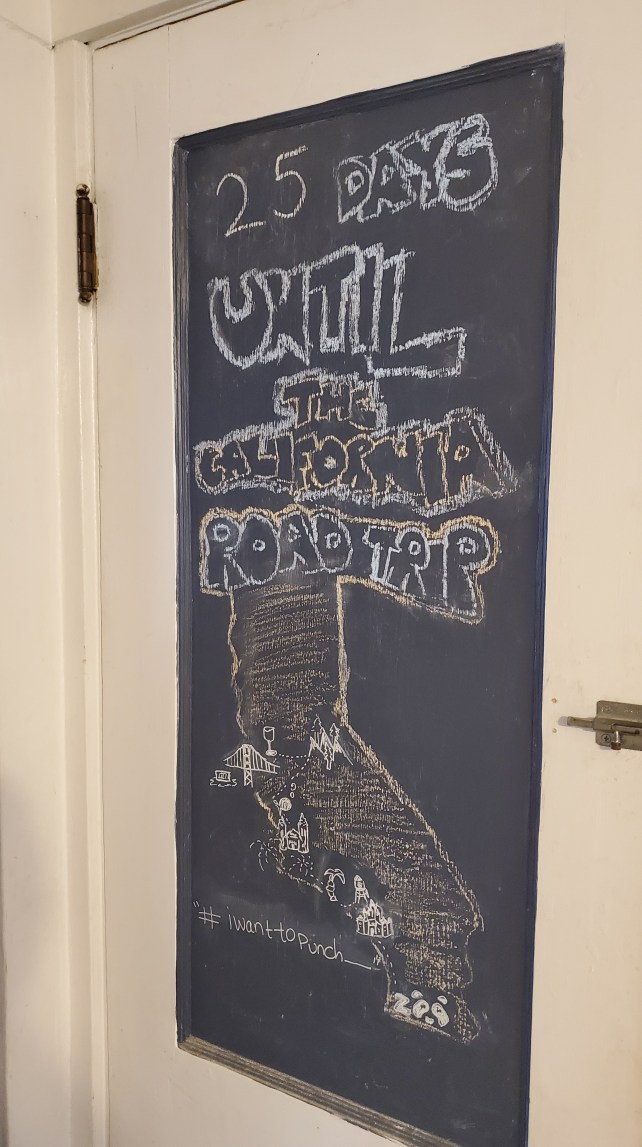 25 DAYS
UNTIL
THE
CALIFORNIA
ROAD TRIP
"# iwanttopunch__"
ZOO